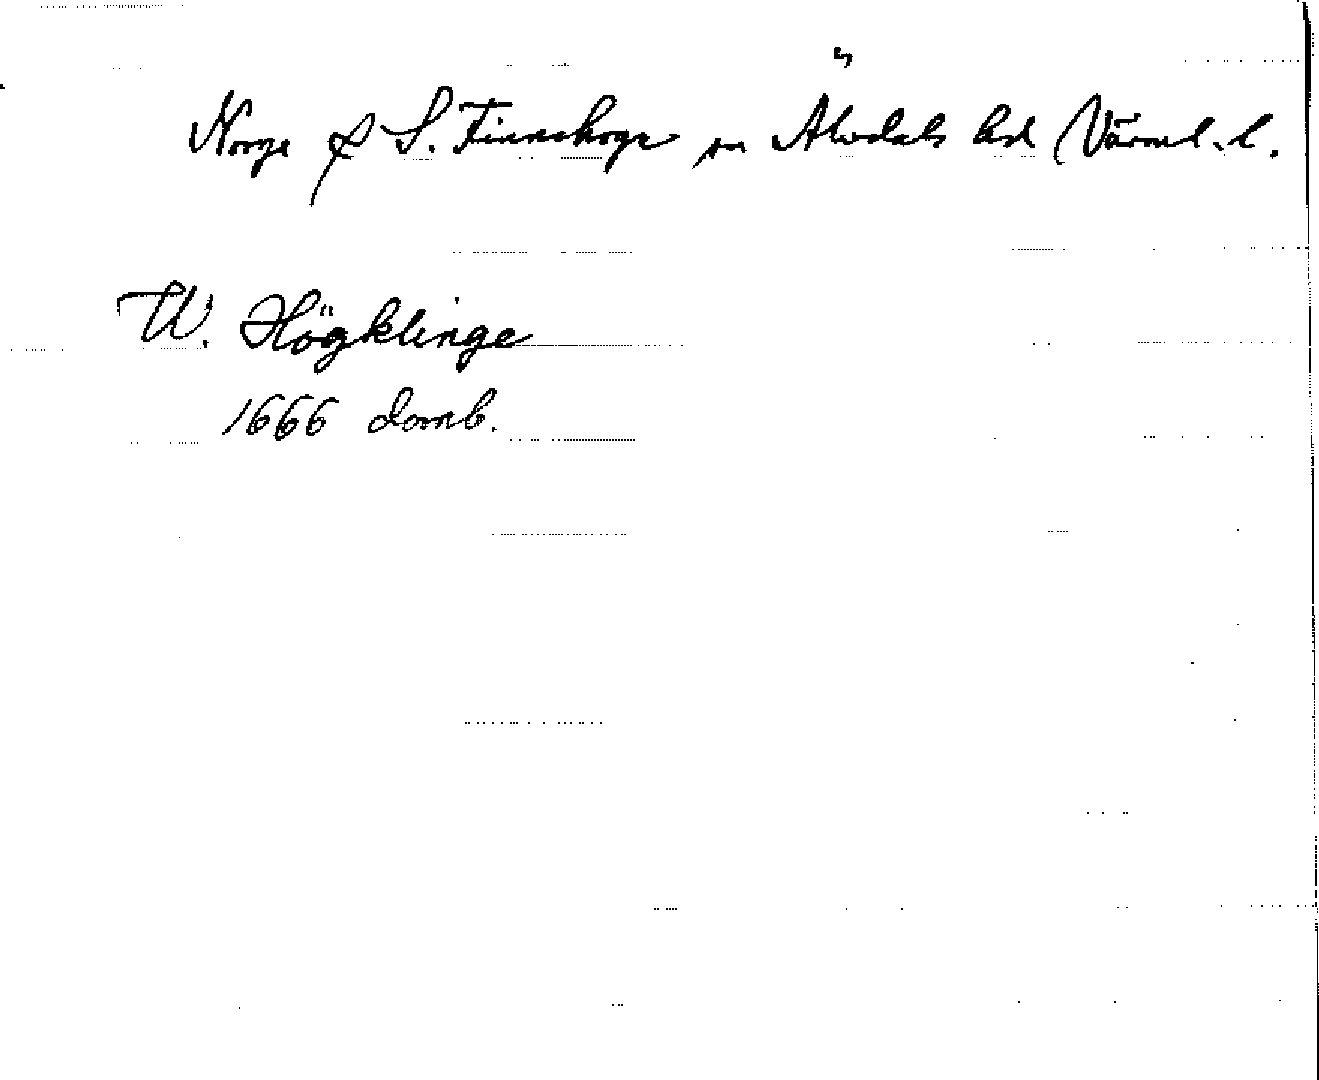 Norge f S. Finnskoga sn Älvdals hd Värml. l.
W. Högklinge
1666 domb.